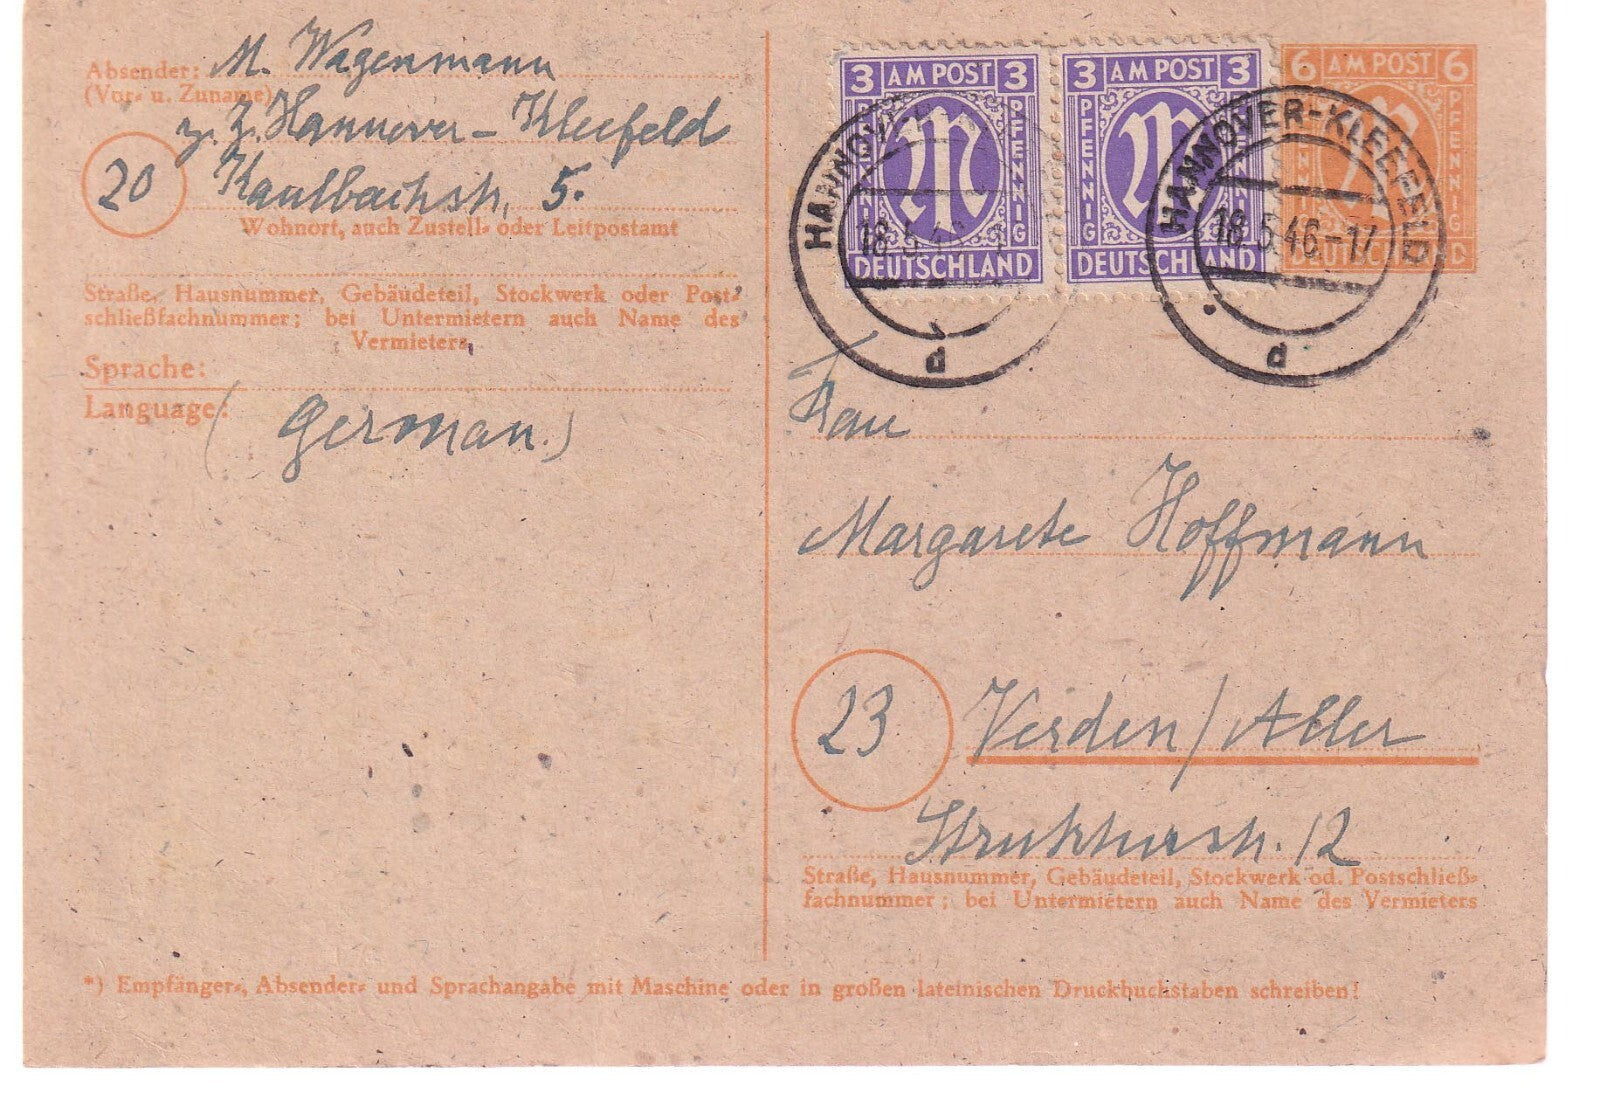 Absender: M. Wagenmann
(Vor- u. Zuname)
z. Z. Hannover - Kleefeld
20 Kaulbachstr. 5.
Wohnort, auch Zustell- oder Leitpostamt
Straße, Hausnummer, Gebäudeteil, Stockwerk oder Post-
schließfachnummer; bei Untermietern auch Name des
Vermieters
Sprache:
Language: (German.)
3 AM POST 3
PFENNIG
DEUTSCHLAND
3 AM POST 3
PFENNIG
DEUTSCHLAND
6 AM POST 6
PFENNIG
DEUTSCHLAND
HANNOVER
18.5.46
d
HANNOVER-KLEEFELD
18.5.46-17
d
Frau
Margarete Hoffmann
23 Verden/Aller
12
Straße, Hausnummer, Gebäudeteil, Stockwerk od. Postschließ-
fachnummer; bei Untermietern auch Name des Vermieters
*) Empfänger-, Absender- und Sprachangabe mit Maschine oder in großen lateinischen Druckbuchstaben schreiben!